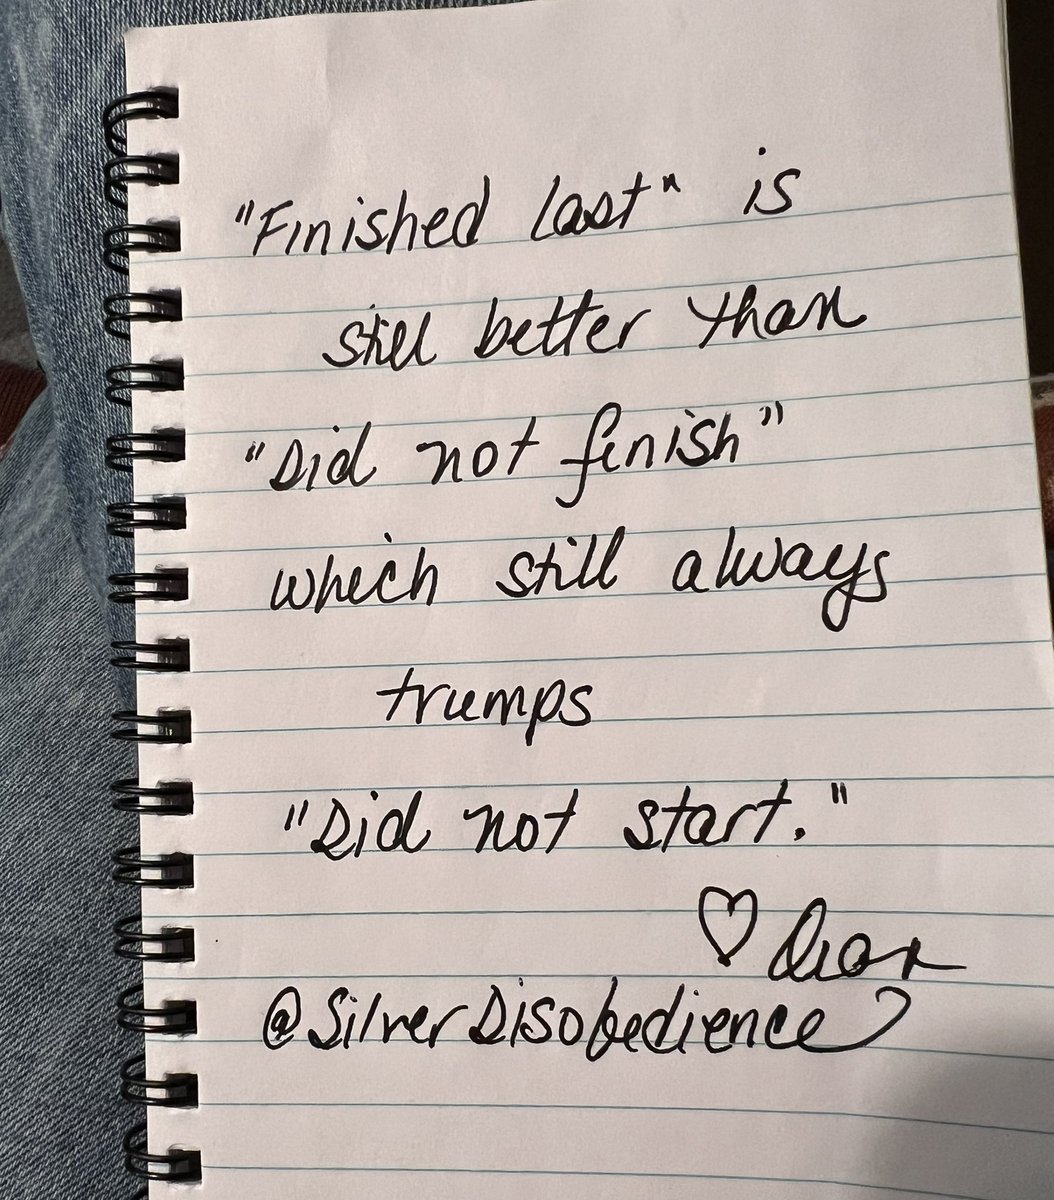 "Finished last" is
still better than
"Did not finish"
which still always
trumps
"Did not start."
♡ Dian
@SilverDisobedience